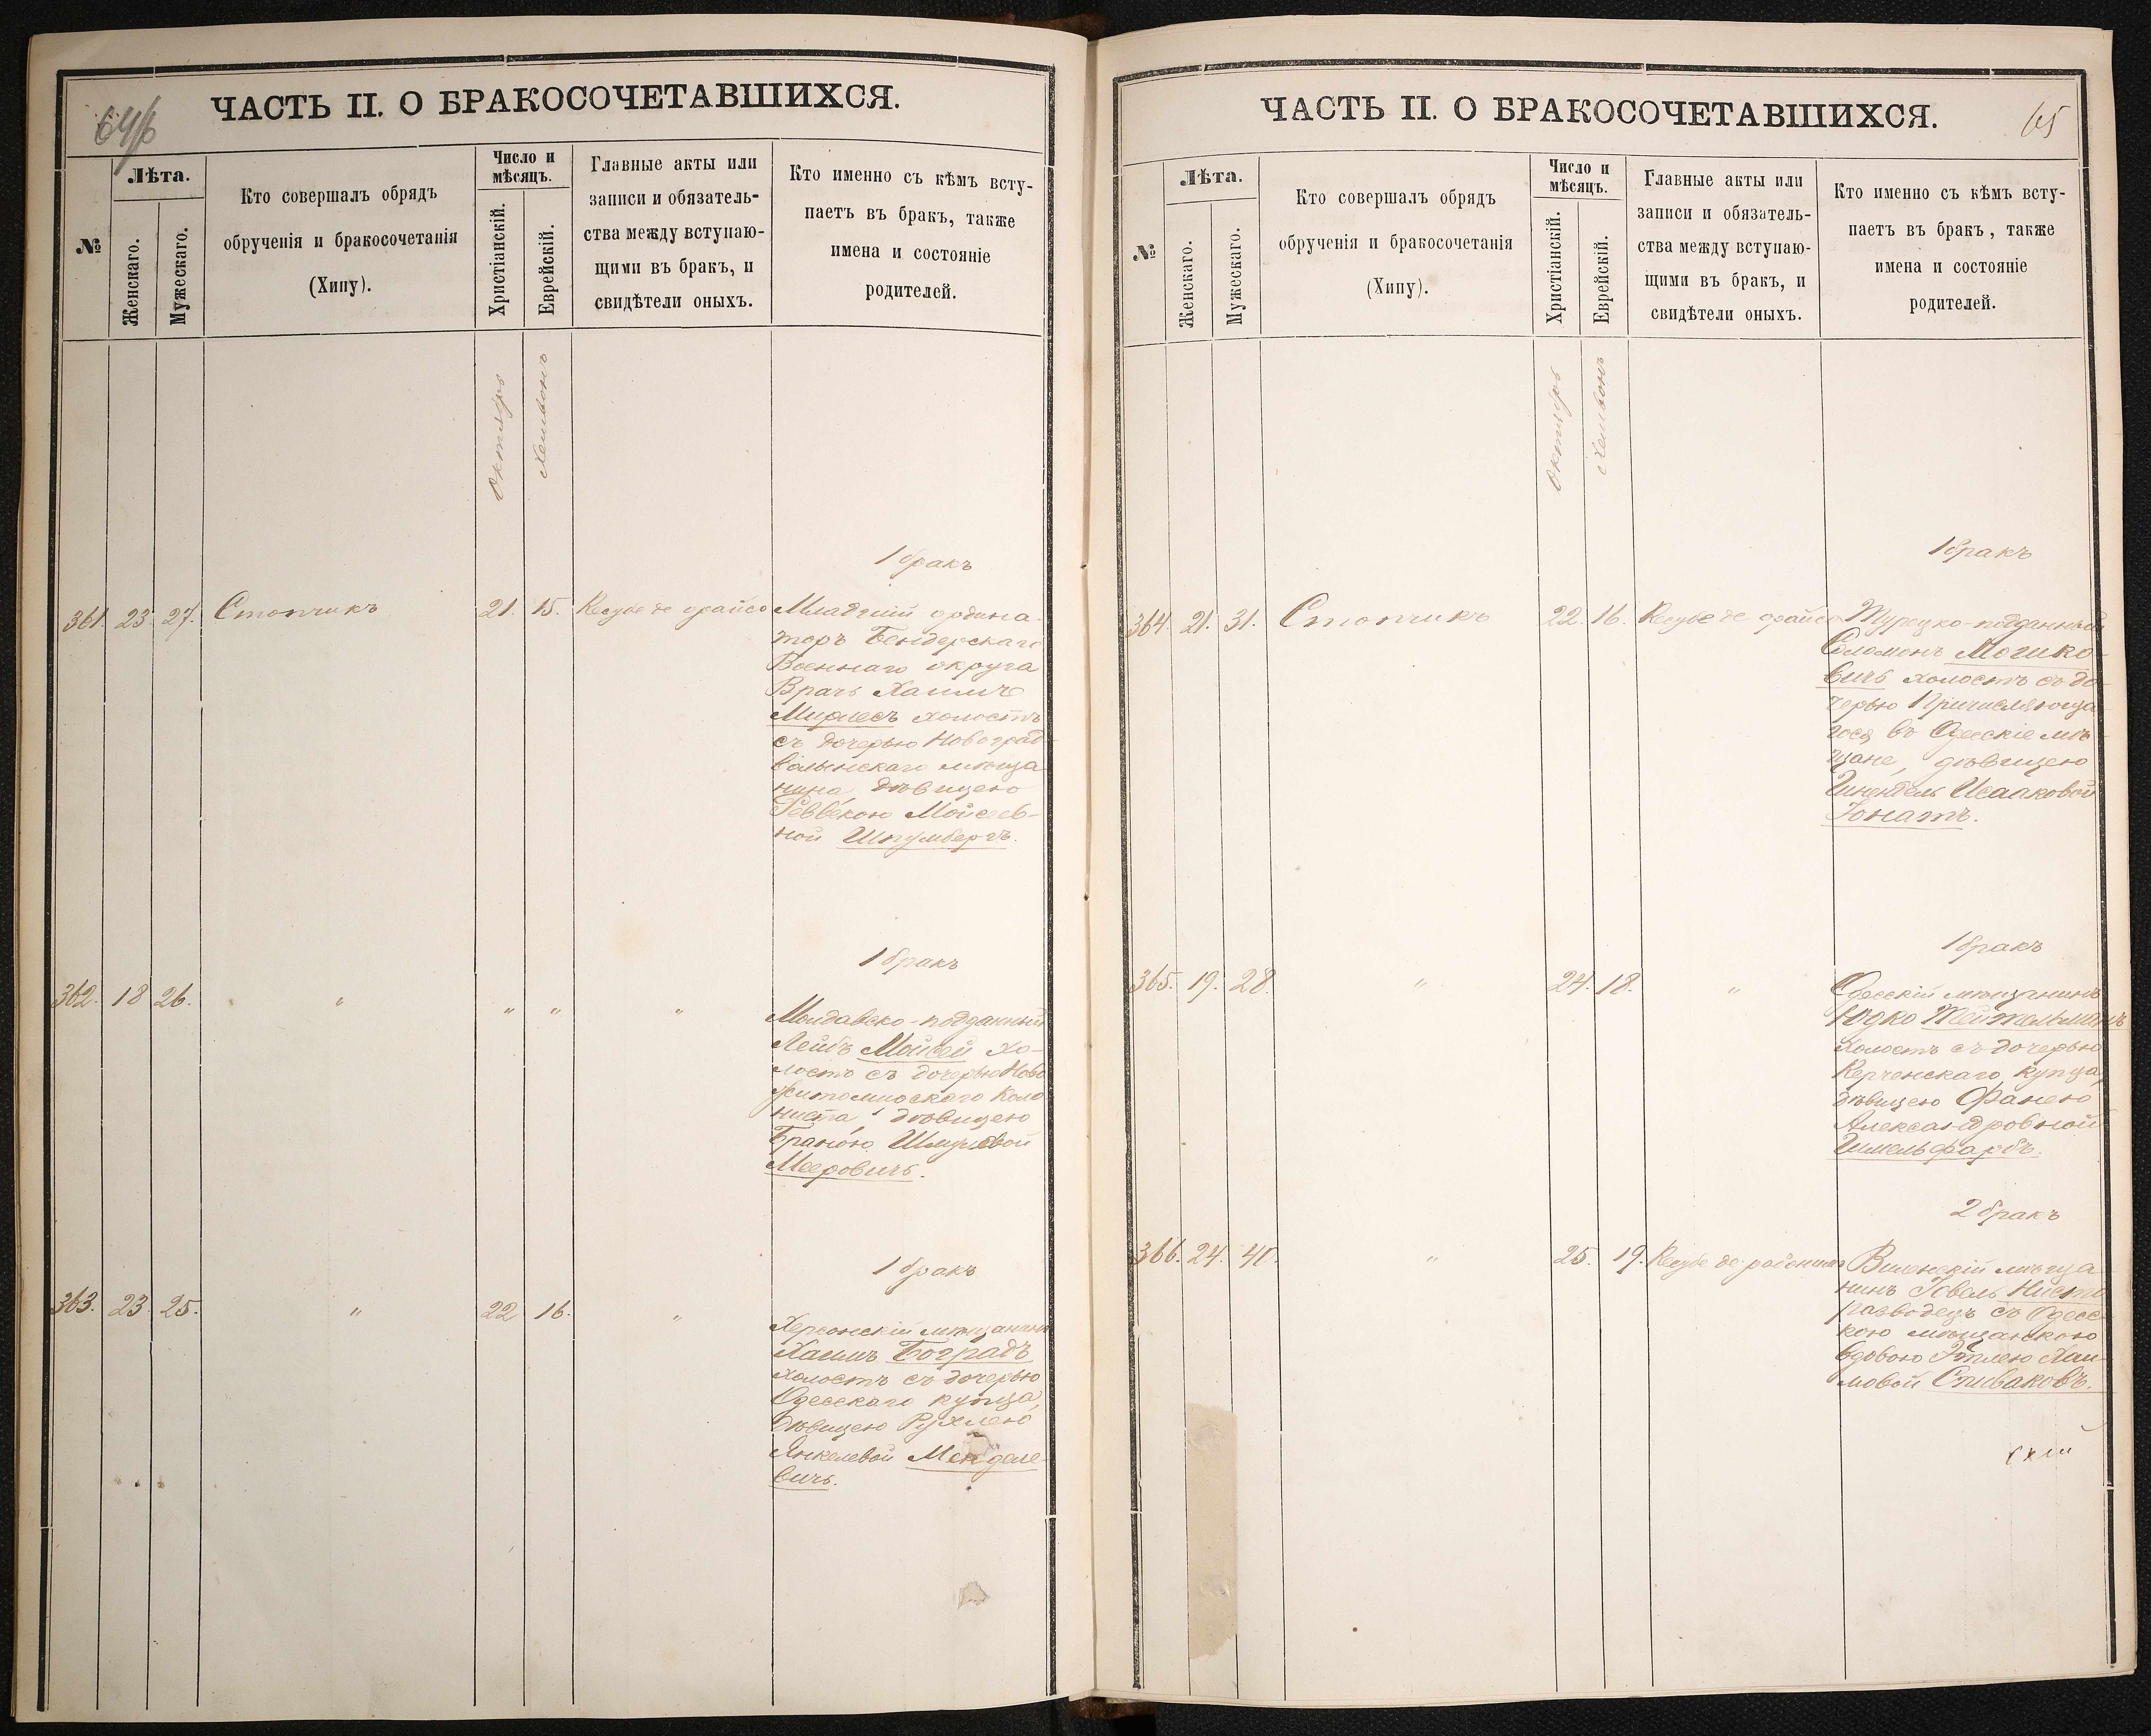 64/б
ЧАСТЬ II. О БРАКОСОЧЕТАВШИХСЯ.
№
Лѣта.
Женскаго.
Мужескаго.
Кто совершалъ обрядъ
обрученія и бракосочетанія
(Хипу).
Число и
мѣсяцъ.
Христіанскій.
Еврейскій.
Главные акты или
записи и обязатель-
ства между вступаю-
щими въ бракъ, и
свидѣтели оныхъ.
Кто именно съ кѣмъ всту-
паетъ въ бракъ, также
имена и состояніе
родителей.
Октябрь
Хешвонъ
1 бракъ
361. 23. 27. Стопчикъ 21. 15. Кесубе де орайсо Младшій ордина-
торъ Бендерскаго
Военнаго округа
Врачъ Хаимъ
холостъ
съ дочерью Новоград
волынскаго мѣща
нина, дѣвицею
Реввекою Мойсеев-
ной
1 бракъ
362. 18 26. " " " "
Молдавско-подданный
Лейбъ Мойсей хо-
лостъ съ дочерью Ново
житомирскаго коло
ниста, дѣвицею
Браною Шмулевой
Мееровичъ.
1 бракъ
363. 23. 25. " 22 16. "
Херсонскій мѣщанинъ
Хаимъ Боградъ
холостъ съ дочерью
Одесскаго купца,
дѣвицею Рухлею
Янкелевой Менделе-
вичъ.
65
ЧАСТЬ II. О БРАКОСОЧЕТАВШИХСЯ.
№
Лѣта.
Женскаго.
Мужескаго.
Кто совершалъ обрядъ
обрученія и бракосочетанія
(Хипу).
Число и
мѣсяцъ.
Христіанскій.
Еврейскій.
Главные акты или
записи и обязатель-
ства между вступаю-
щими въ бракъ, и
свидѣтели оныхъ.
Кто именно съ кѣмъ всту-
паетъ въ бракъ, также
имена и состояніе
родителей.
Октябрь
Хешвонъ
1 бракъ
364. 21. 31. Стопчикъ 22. 16. Кесубе де орайсо Турецко-подданный
Соломонъ Мошко-
вичъ холостъ съ до-
черью Причисляюща
гося въ Одесскіе мѣ-
щане, дѣвицею
Исааковой
Іонатъ.
1 бракъ
365. 19. 28. " 24. 18. " Одесскій мѣщанинъ
Юдко Тейтельманъ
холостъ съ дочерью
Керченскаго купца,
дѣвицею Фанею
Александровной
Гимельфарбъ.
2 бракъ
366. 24. 40. " 25. 19. Кесубе де Виленскій мѣща
нинъ Говель
разводецъ съ Одесс-
кою мѣщанскою
вдовою Этлею Хаи-
мовой Спиваковъ.